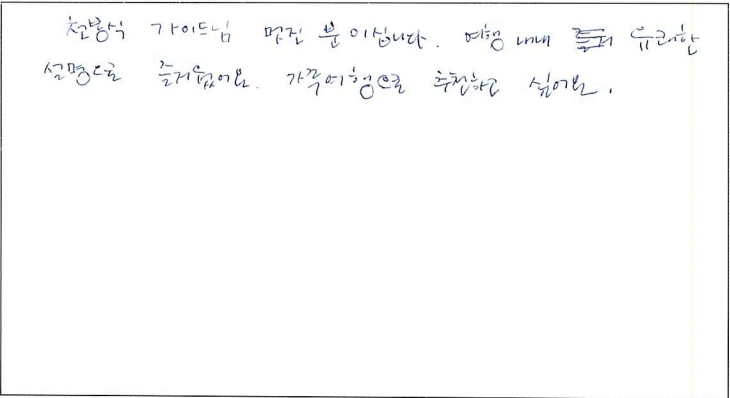 천봉식 가이드님 멋진 분이십니다. 여행 내내 유쾌한
설명으로 즐거웠어요. 가족여행으로 추천하고 싶어요.